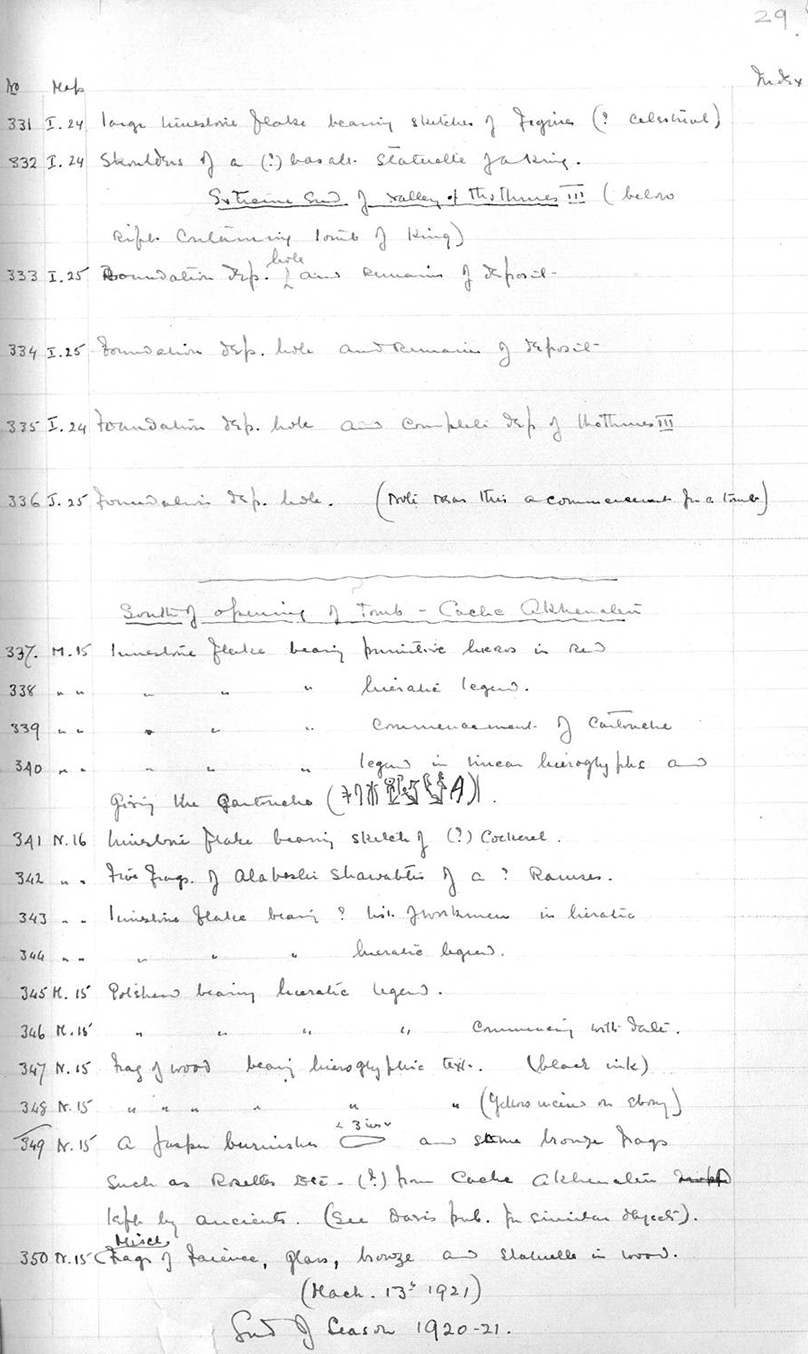 29.
No Map Index
331 I.24 Large limestone flake bearing sketches of Figures (? celestrial)
332 I.24 Shoulders of a (?) basalt statuette of a King.
Extreme End of Valley of Thothmes III (below
Rift containing tomb of King)
333 I.25 Foundation dep. hole and remains of deposit
334 I.25 Foundation dep. hole and remains of deposit
335 I.24 Foundation dep. hole and complete dep of Thothmes III
336 I.25 Foundation dep. hole. (Note near this a commencement for a tomb)
South of opening of Tomb - Cache Akhenaten
337. M.15 Limestone flake bearing primitive hieros in red
338 " " " " " hieratic legend.
339 " " " " " commencement of Cartouche
340 " " " " " legend in linear hieroglyphs and
giving the Cartouche ( ).
341 N.16 Limestone flake bearing sketch of (?) Cockerel.
342 " " Five frags. of Alabaster Shawabtis of a ? Ramses.
343 " " Limestone flake bearing ? list of workmen in hieratic
344 " " " " " hieratic legend.
345 M.15 Potsherd bearing hieratic legend.
346 M.15 " " " " Commencing with date.
347 N.15 Frag of wood bearing hieroglyphic text. (black ink)
348 N.15 " " " " " " (Yellow incised on Ebony)
349 N.15 A Jasper burnisher < 3 ins > and some bronze frags
Such as Rosettes etc - (?) from Cache Akhenaten
left by ancients. (See Davis pub. for similar objects).
350 N.15 Miscl. Frags of Faience, glass, bronze and statuette in wood.
(March. 13th 1921)
End of Season 1920-21.